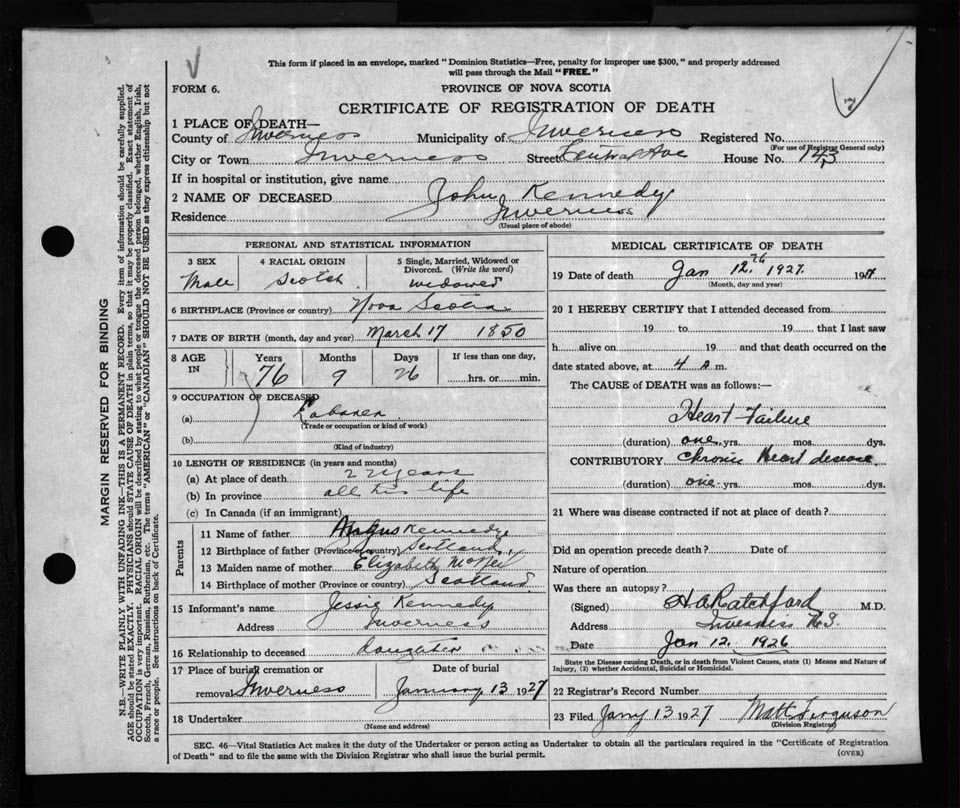 This form if placed in an envelope, marked "Dominion Statistics—Free, penalty for improper use $300," and properly addressed
will pass through the Mail "FREE."
FORM 6.
PROVINCE OF NOVA SCOTIA
CERTIFICATE OF REGISTRATION OF DEATH
1 PLACE OF DEATH—
County of Inverness Municipality of Inverness Registered No.
(For use of Registrar General only)
City or Town Inverness Street Central Ave House No. 143
If in hospital or institution, give name
2 NAME OF DECEASED John Kennedy
Residence Inverness
(Usual place of abode)
PERSONAL AND STATISTICAL INFORMATION
3 SEX 4 RACIAL ORIGIN 5 Single, Married, Widowed or Divorced. (Write the word)
Male Scotch widowed
6 BIRTHPLACE (Province or country) Nova Scotia
7 DATE OF BIRTH (month, day and year) March 17 1850
8 AGE IN Years Months Days If less than one day,
76 9 26 hrs. or min.
9 OCCUPATION OF DECEASED
(a) Labourer
(Trade or occupation or kind of work)
(b)
(Kind of industry)
10 LENGTH OF RESIDENCE (in years and months)
(a) At place of death 22 years
(b) In province all his life
(c) In Canada (if an immigrant)
Parents
11 Name of father Angus Kennedy
12 Birthplace of father (Province or country) Scotland
13 Maiden name of mother Elizabeth McNeil
14 Birthplace of mother (Province or country) Scotland
15 Informant's name Jessie Kennedy
Address Inverness
16 Relationship to deceased daughter
17 Place of burial cremation or Date of burial
removal Inverness January 13 1927
18 Undertaker
(Name and address)
MEDICAL CERTIFICATE OF DEATH
19 Date of death Jan 12th 1927. 19
(Month, day and year)
20 I HEREBY CERTIFY that I attended deceased from
19 to 19 that I last saw
h alive on 19 and that death occurred on the
date stated above, at 4 a m.
The CAUSE of DEATH was as follows:—
Heart Failure
(duration) one yrs. mos. dys.
CONTRIBUTORY Chronic Heart desease
(duration) one yrs. mos. dys.
21 Where was disease contracted if not at place of death?
Did an operation precede death? Date of
Nature of operation
Was there an autopsy?
(Signed) H A Ratchford M.D.
Address Inverness N.S.
Date Jan 12, 1926
State the Disease causing Death, or in death from Violent Causes, state (1) Means and Nature of
Injury, (2) whether Accidental, Suicidal or Homicidal.
22 Registrar's Record Number
23 Filed Jany 13 1927 Matt Ferguson
(Division Registrar)
SEC. 46—Vital Statistics Act makes it the duty of the Undertaker or person acting as Undertaker to obtain all the particulars required in the "Certificate of Registration
of Death" and to file the same with the Division Registrar who shall issue the burial permit.
(OVER)
MARGIN RESERVED FOR BINDING
N.B.—WRITE PLAINLY WITH UNFADING INK—THIS IS A PERMANENT RECORD. Every item of information should be carefully supplied.
AGE should be stated EXACTLY. PHYSICIANS should STATE CAUSE OF DEATH in plain terms, so that it may be properly classified. Exact statement of
OCCUPATION is very important. RACIAL ORIGIN will be described by stating to what people or tongue the deceased person belonged, whether English, Irish,
Scotch, French, German, Russian, Ruthenian, etc. The terms "AMERICAN" or "CANADIAN" SHOULD NOT BE USED as they express citizenship but not
a race or people. See instructions on back of Certificate.